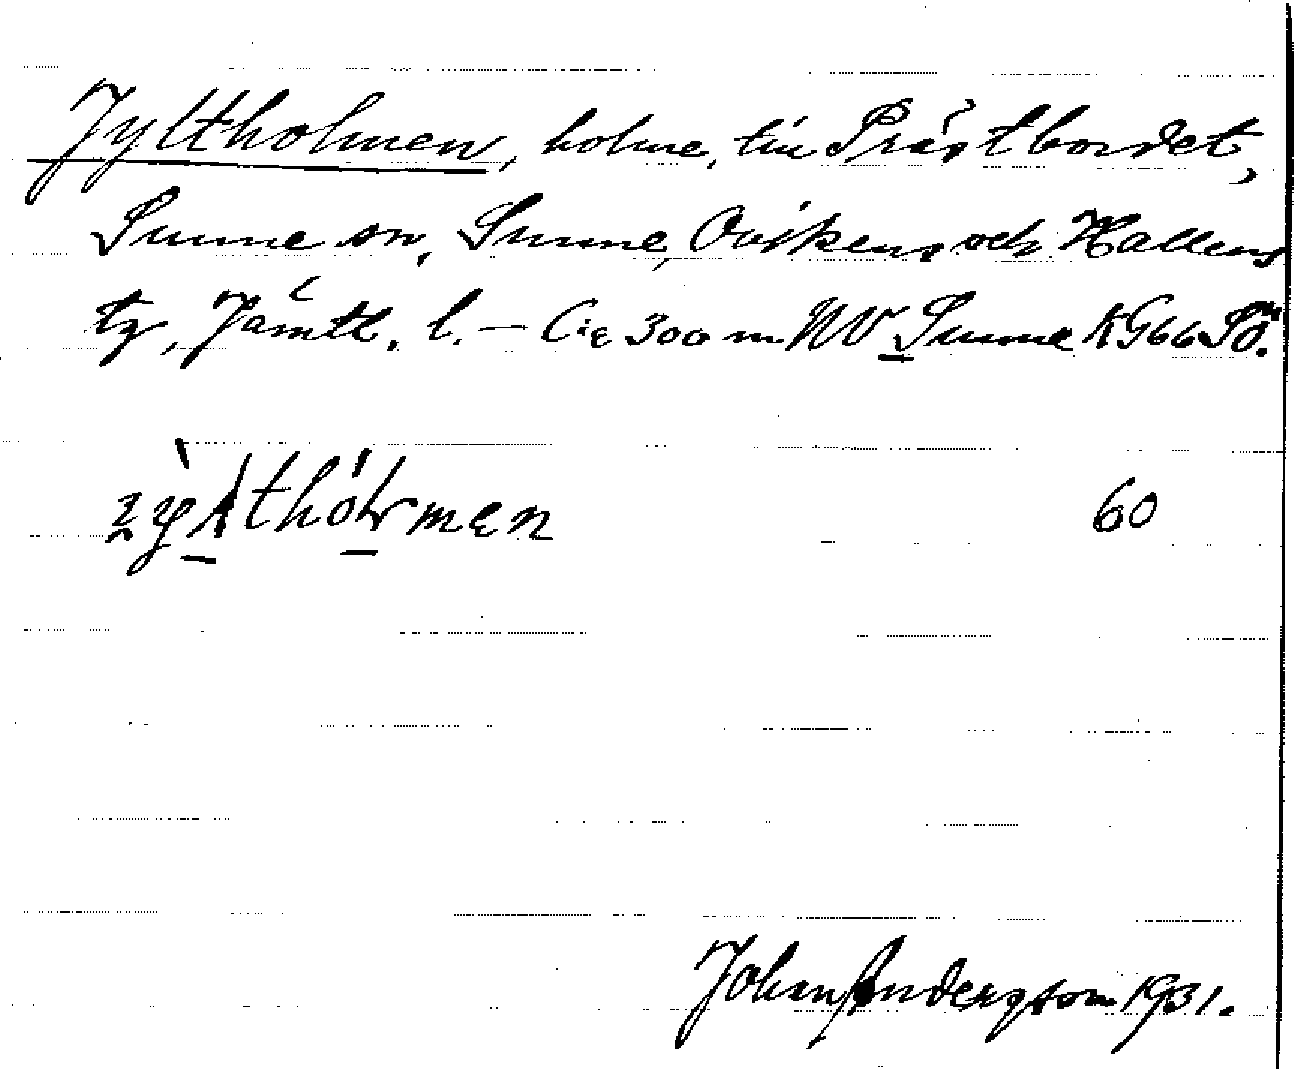 Jyltholmen, holme, till Prästbordet,
Sunne sn, Sunne, Ovikens och Hallens
tg, Jämtl. l. — C:a 300 m NV Sunne K G66 SÖ.
60
John Andersson 1931.